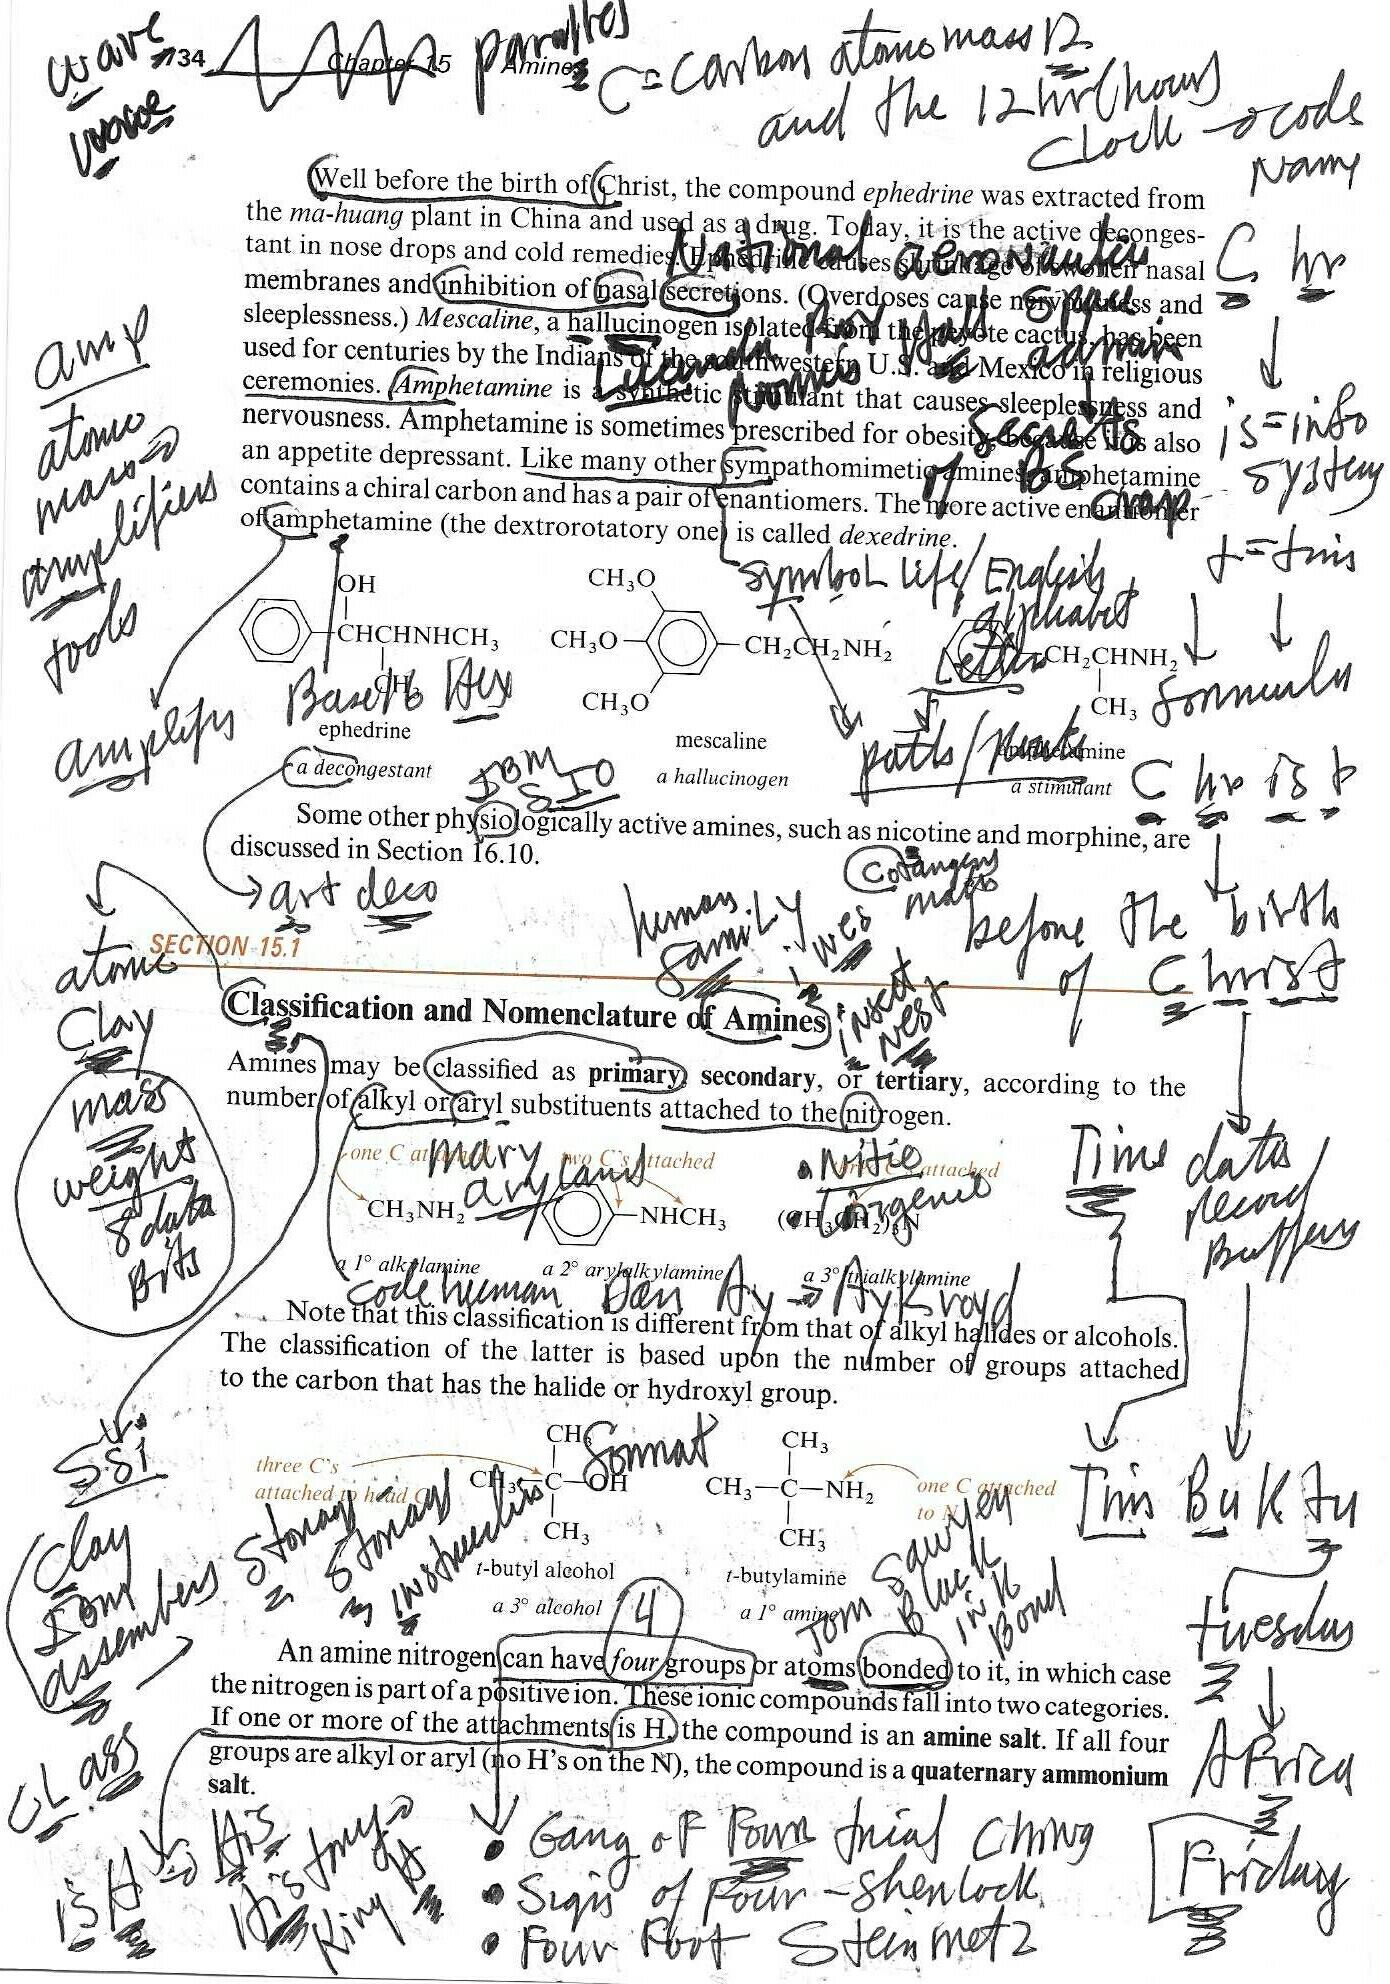 wave
734 Chapter 15 Amines
C = Carbon atomic mass 12
and the 12 hr (hours
Clock → code
Name
Well before the birth of Christ, the compound ephedrine was extracted from
the ma-huang plant in China and used as a drug. Today, it is the active deconges-
tant in nose drops and cold remedies. Ephedrine causes shrinkage of swollen nasal
membranes and inhibition of nasal secretions. (Overdoses cause nervousness and
sleeplessness.) Mescaline, a hallucinogen isolated from the peyote cactus, has been
used for centuries by the Indians of the southwestern U.S. and Mexico in religious
ceremonies. Amphetamine is a synthetic stimulant that causes sleeplessness and
nervousness. Amphetamine is sometimes prescribed for obesity, because it is also
an appetite depressant. Like many other sympathomimetic amines, amphetamine
contains a chiral carbon and has a pair of enantiomers. The more active enantiomer
of amphetamine (the dextrorotatory one) is called dexedrine.
National
Secrets
of
C hr
is = info
system
t = time
formula
C hr is t
before the birth
of Christ
Time data
record
Buffers
Tim Bu K tu
tuesday
AFrica
Friday
amp
atomic
mass →
amplifiers
tools
amplify
Symbol Life / English
alphabet
Letter
OH
CHCHNHCH₃
CH₃
ephedrine
a decongestant
CH₃O
CH₃O
CH₃O
CH₂CH₂NH₂
mescaline
a hallucinogen
CH₂CHNH₂
CH₃
amphetamine
a stimulant
Base 16 Hex
IBM
SIO
Some other physiologically active amines, such as nicotine and morphine, are
discussed in Section 16.10.
art deco
human
family
insect
nest
atomic
Clay
mass
weight
8 data
Bits
SECTION 15.1
Classification and Nomenclature of Amines
Amines may be classified as primary, secondary, or tertiary, according to the
number of alkyl or aryl substituents attached to the nitrogen.
one C attached
two C's attached
three C's attached
Mary
aryland
CH₃NH₂
NHCH₃
(CH₃CH₂)₃N
a 1° alkylamine
a 2° arylalkylamine
a 3° trialkylamine
code human Dan Ay → Aykroyd
Note that this classification is different from that of alkyl halides or alcohols.
The classification of the latter is based upon the number of groups attached
to the carbon that has the halide or hydroxyl group.
SSI
Clay
assemblers
CLass
three C's
attached to head C
CH₃
CH₃—C—OH
CH₃
t-butyl alcohol
a 3° alcohol
CH₃
CH₃—C—NH₂
CH₃
t-butylamine
a 1° amine
one C attached
to N
Storage
Tom Sawyer
Black
ink
Bond
4
An amine nitrogen can have four groups or atoms bonded to it, in which case
the nitrogen is part of a positive ion. These ionic compounds fall into two categories.
If one or more of the attachments is H, the compound is an amine salt. If all four
groups are alkyl or aryl (no H's on the N), the compound is a quaternary ammonium
salt.
is H → His
History →
King H
• Gang of Four trial Ching
• Sign of Four - Sherlock
• Four Foot Steinmetz